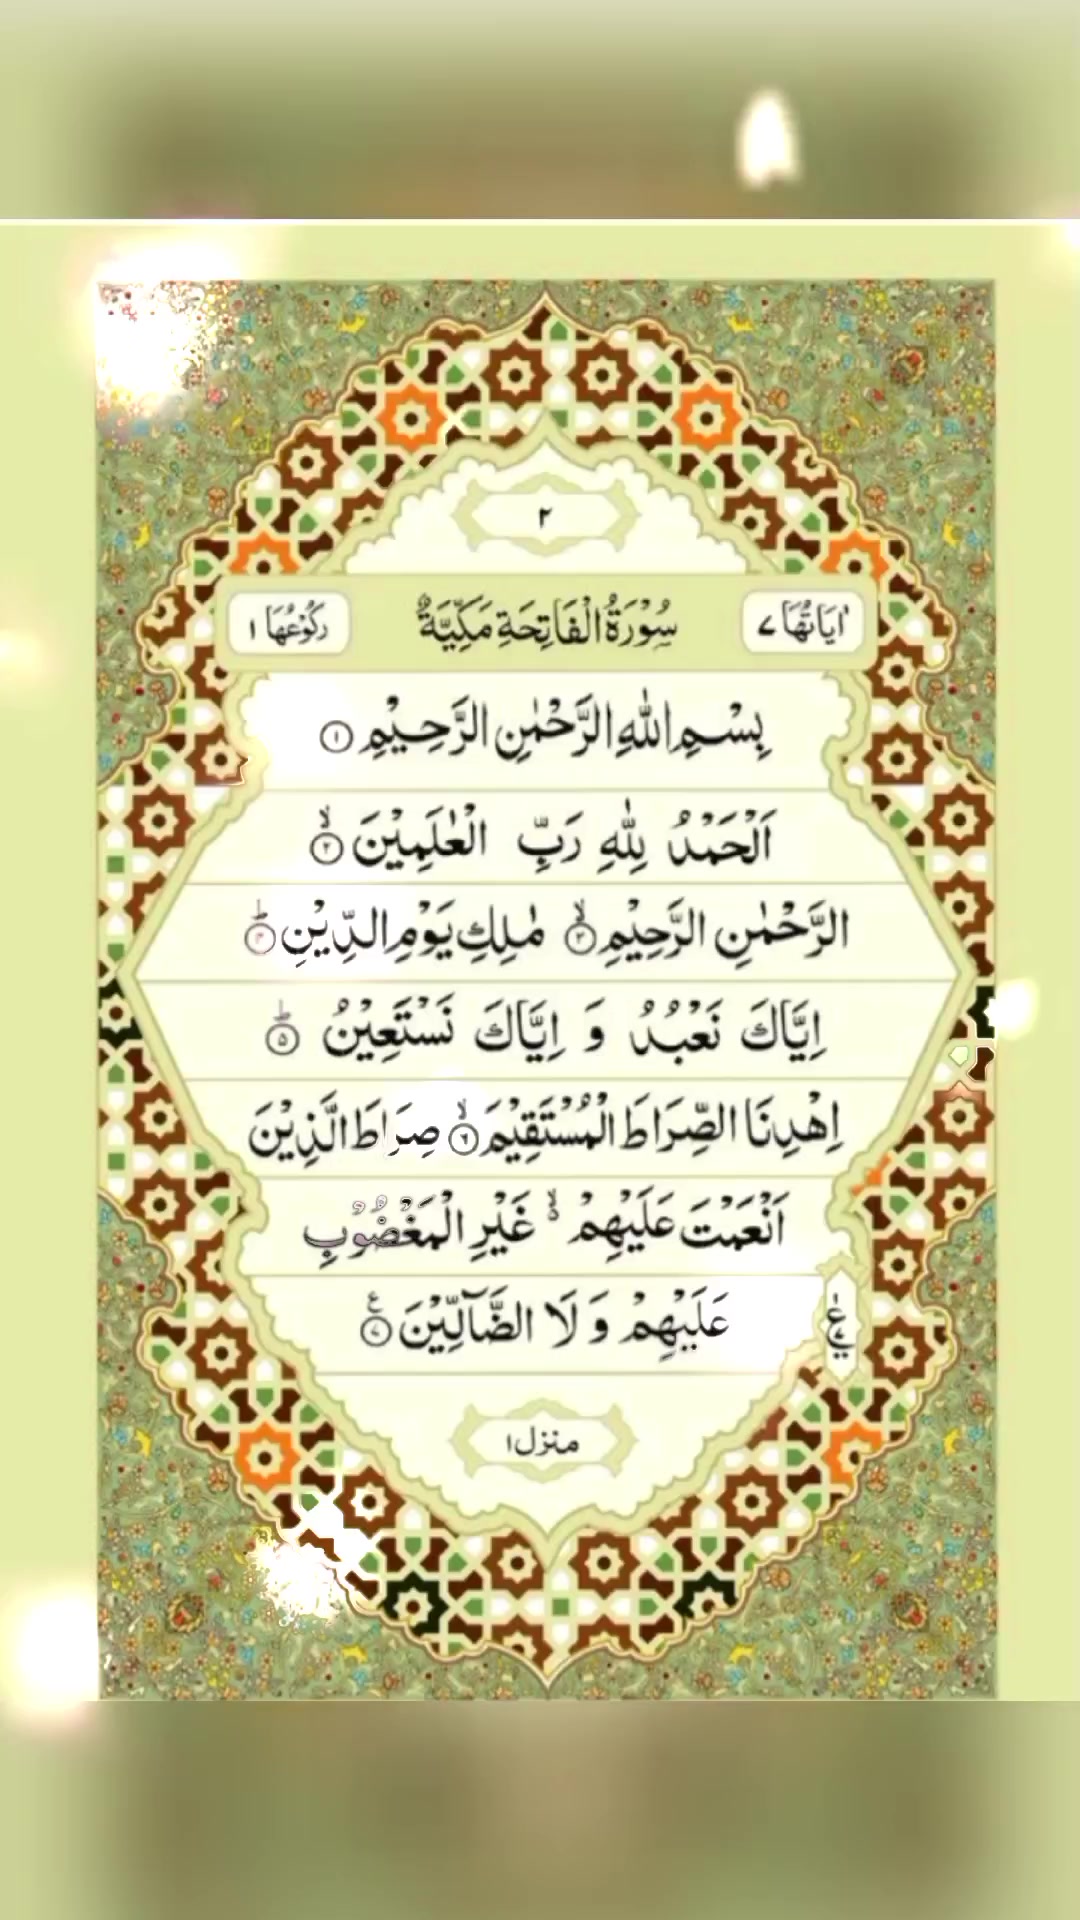 ٢
اٰیَاتُهَا ٧ سُوْرَةُ الْفَاتِحَةِ مَكِّیَّةٌ رُكُوْعُهَا ١
بِسْمِ اللهِ الرَّحْمٰنِ الرَّحِیْمِ ١
اَلْحَمْدُ لِلّٰهِ رَبِّ الْعٰلَمِیْنَ ۙ ٢
الرَّحْمٰنِ الرَّحِیْمِ ۙ ٣ مٰلِكِ یَوْمِ الدِّیْنِ ؕ ۴
اِیَّاكَ نَعْبُدُ وَ اِیَّاكَ نَسْتَعِیْنُ ؕ ۵
اِهْدِنَا الصِّرَاطَ الْمُسْتَقِیْمَ ۙ ۶ صِرَاطَ الَّذِیْنَ
اَنْعَمْتَ عَلَیْهِمْ ۙ۬ غَیْرِ الْمَغْضُوْبِ
عَلَیْهِمْ وَ لَا الضَّآلِّیْنَ ۧ ٧
منزل ١